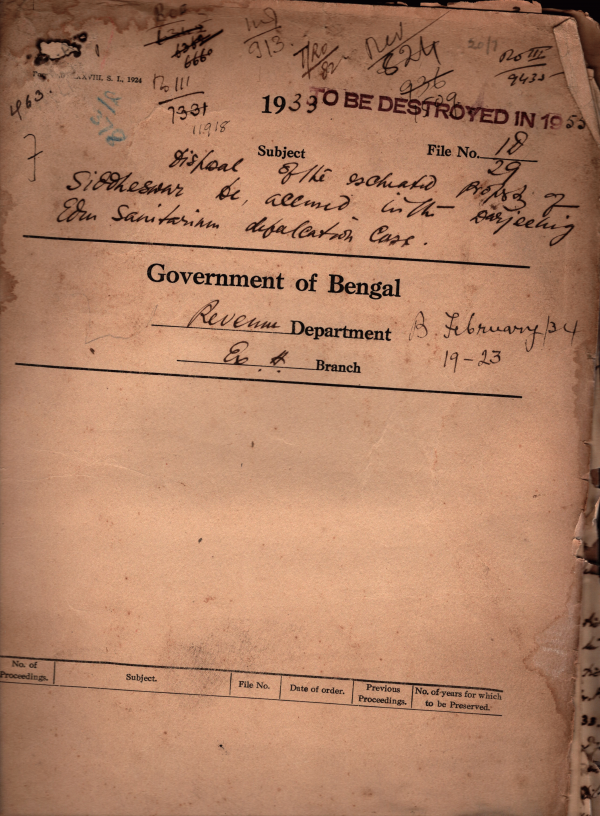 Ind
913
Rev
824
20/1
Ro III
9435
6660
Ro III
7331
11918
XXVIII, S. I., 1924
463
1933
TO BE DESTROYED IN 1955
Subject
File No. 18
29
Disposal of the escheated property of
Siddheswar De, accused in the Darjeeling
Eden Sanitarium defalcation Case.
Government of Bengal
Revenue Department
B. February/34
19-23
Branch
No. of Proceedings.
Subject.
File No.
Date of order.
Previous Proceedings.
No. of years for which to be Preserved.